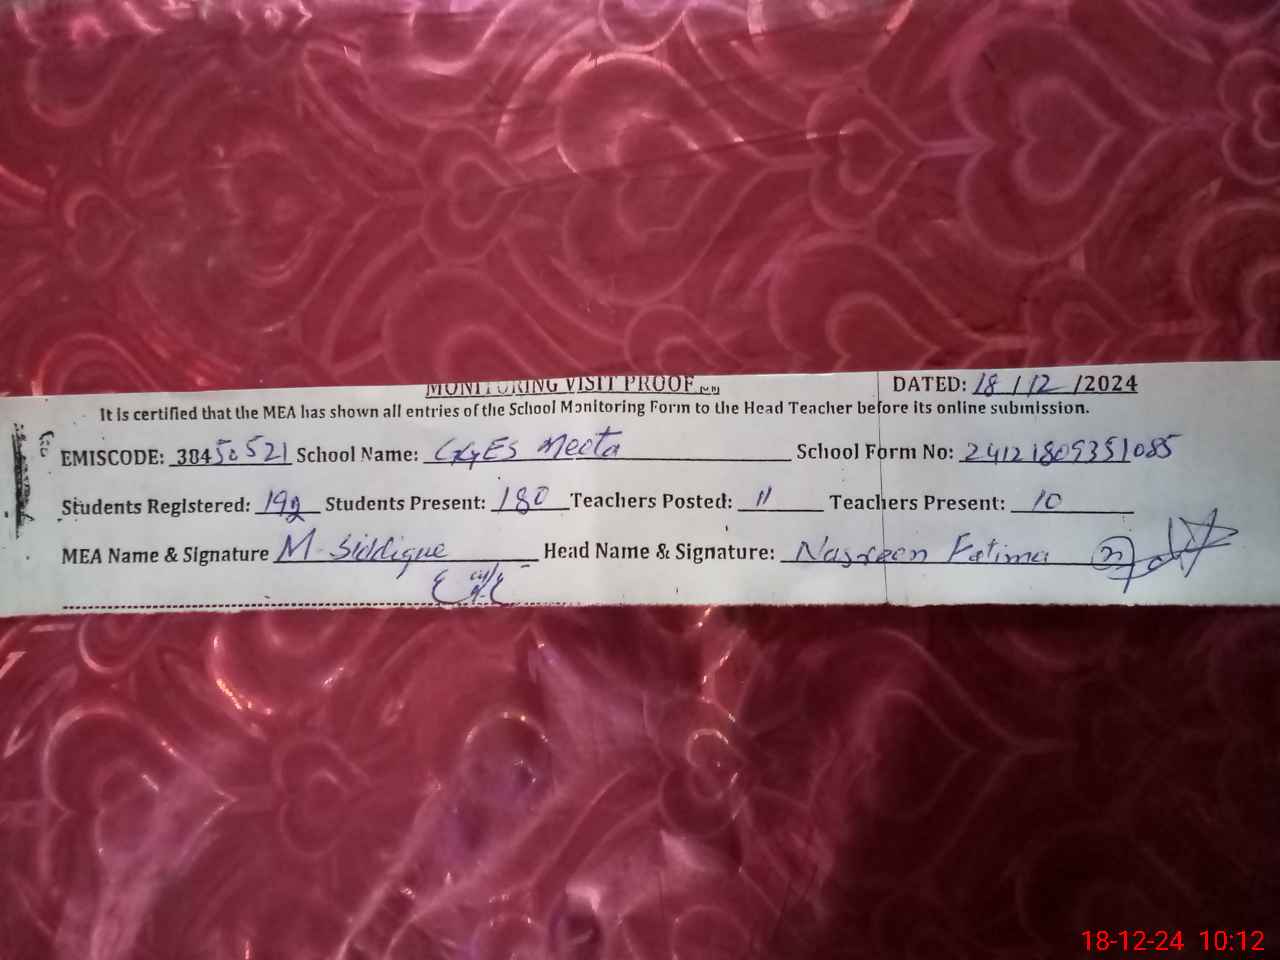 MONITORING VISIT PROOF
DATED: 18/12/2024
It is certified that the MEA has shown all entries of the School Monitoring Form to the Head Teacher before its online submission.
EMISCODE: 38450521 School Name: GGES Meeta School Form No: 24121809351085
Students Registered: 192 Students Present: 180 Teachers Posted: 11 Teachers Present: 10
MEA Name & Signature M. Siddique Head Name & Signature: Nasreen Fatima
18-12-24 10:12